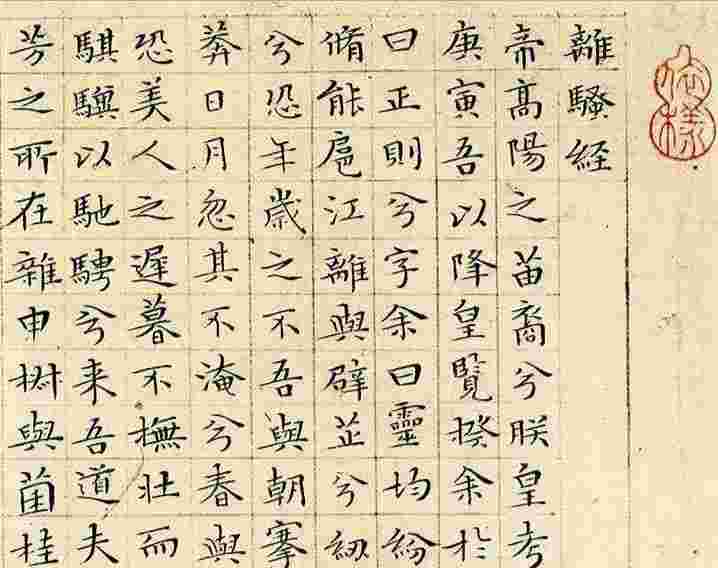 離騷経
帝髙陽之苗裔兮朕皇考
庚寅吾以降皇覽揆余於
曰正則兮字余曰靈均紛
脩能扈江離與辟芷兮紉
兮恐年歲之不吾與朝搴
莽日月忽其不淹兮春與
恐美人之遲暮不撫壯而
騏驥以馳騁兮来吾道夫
芳之所在雜申椒與菌桂